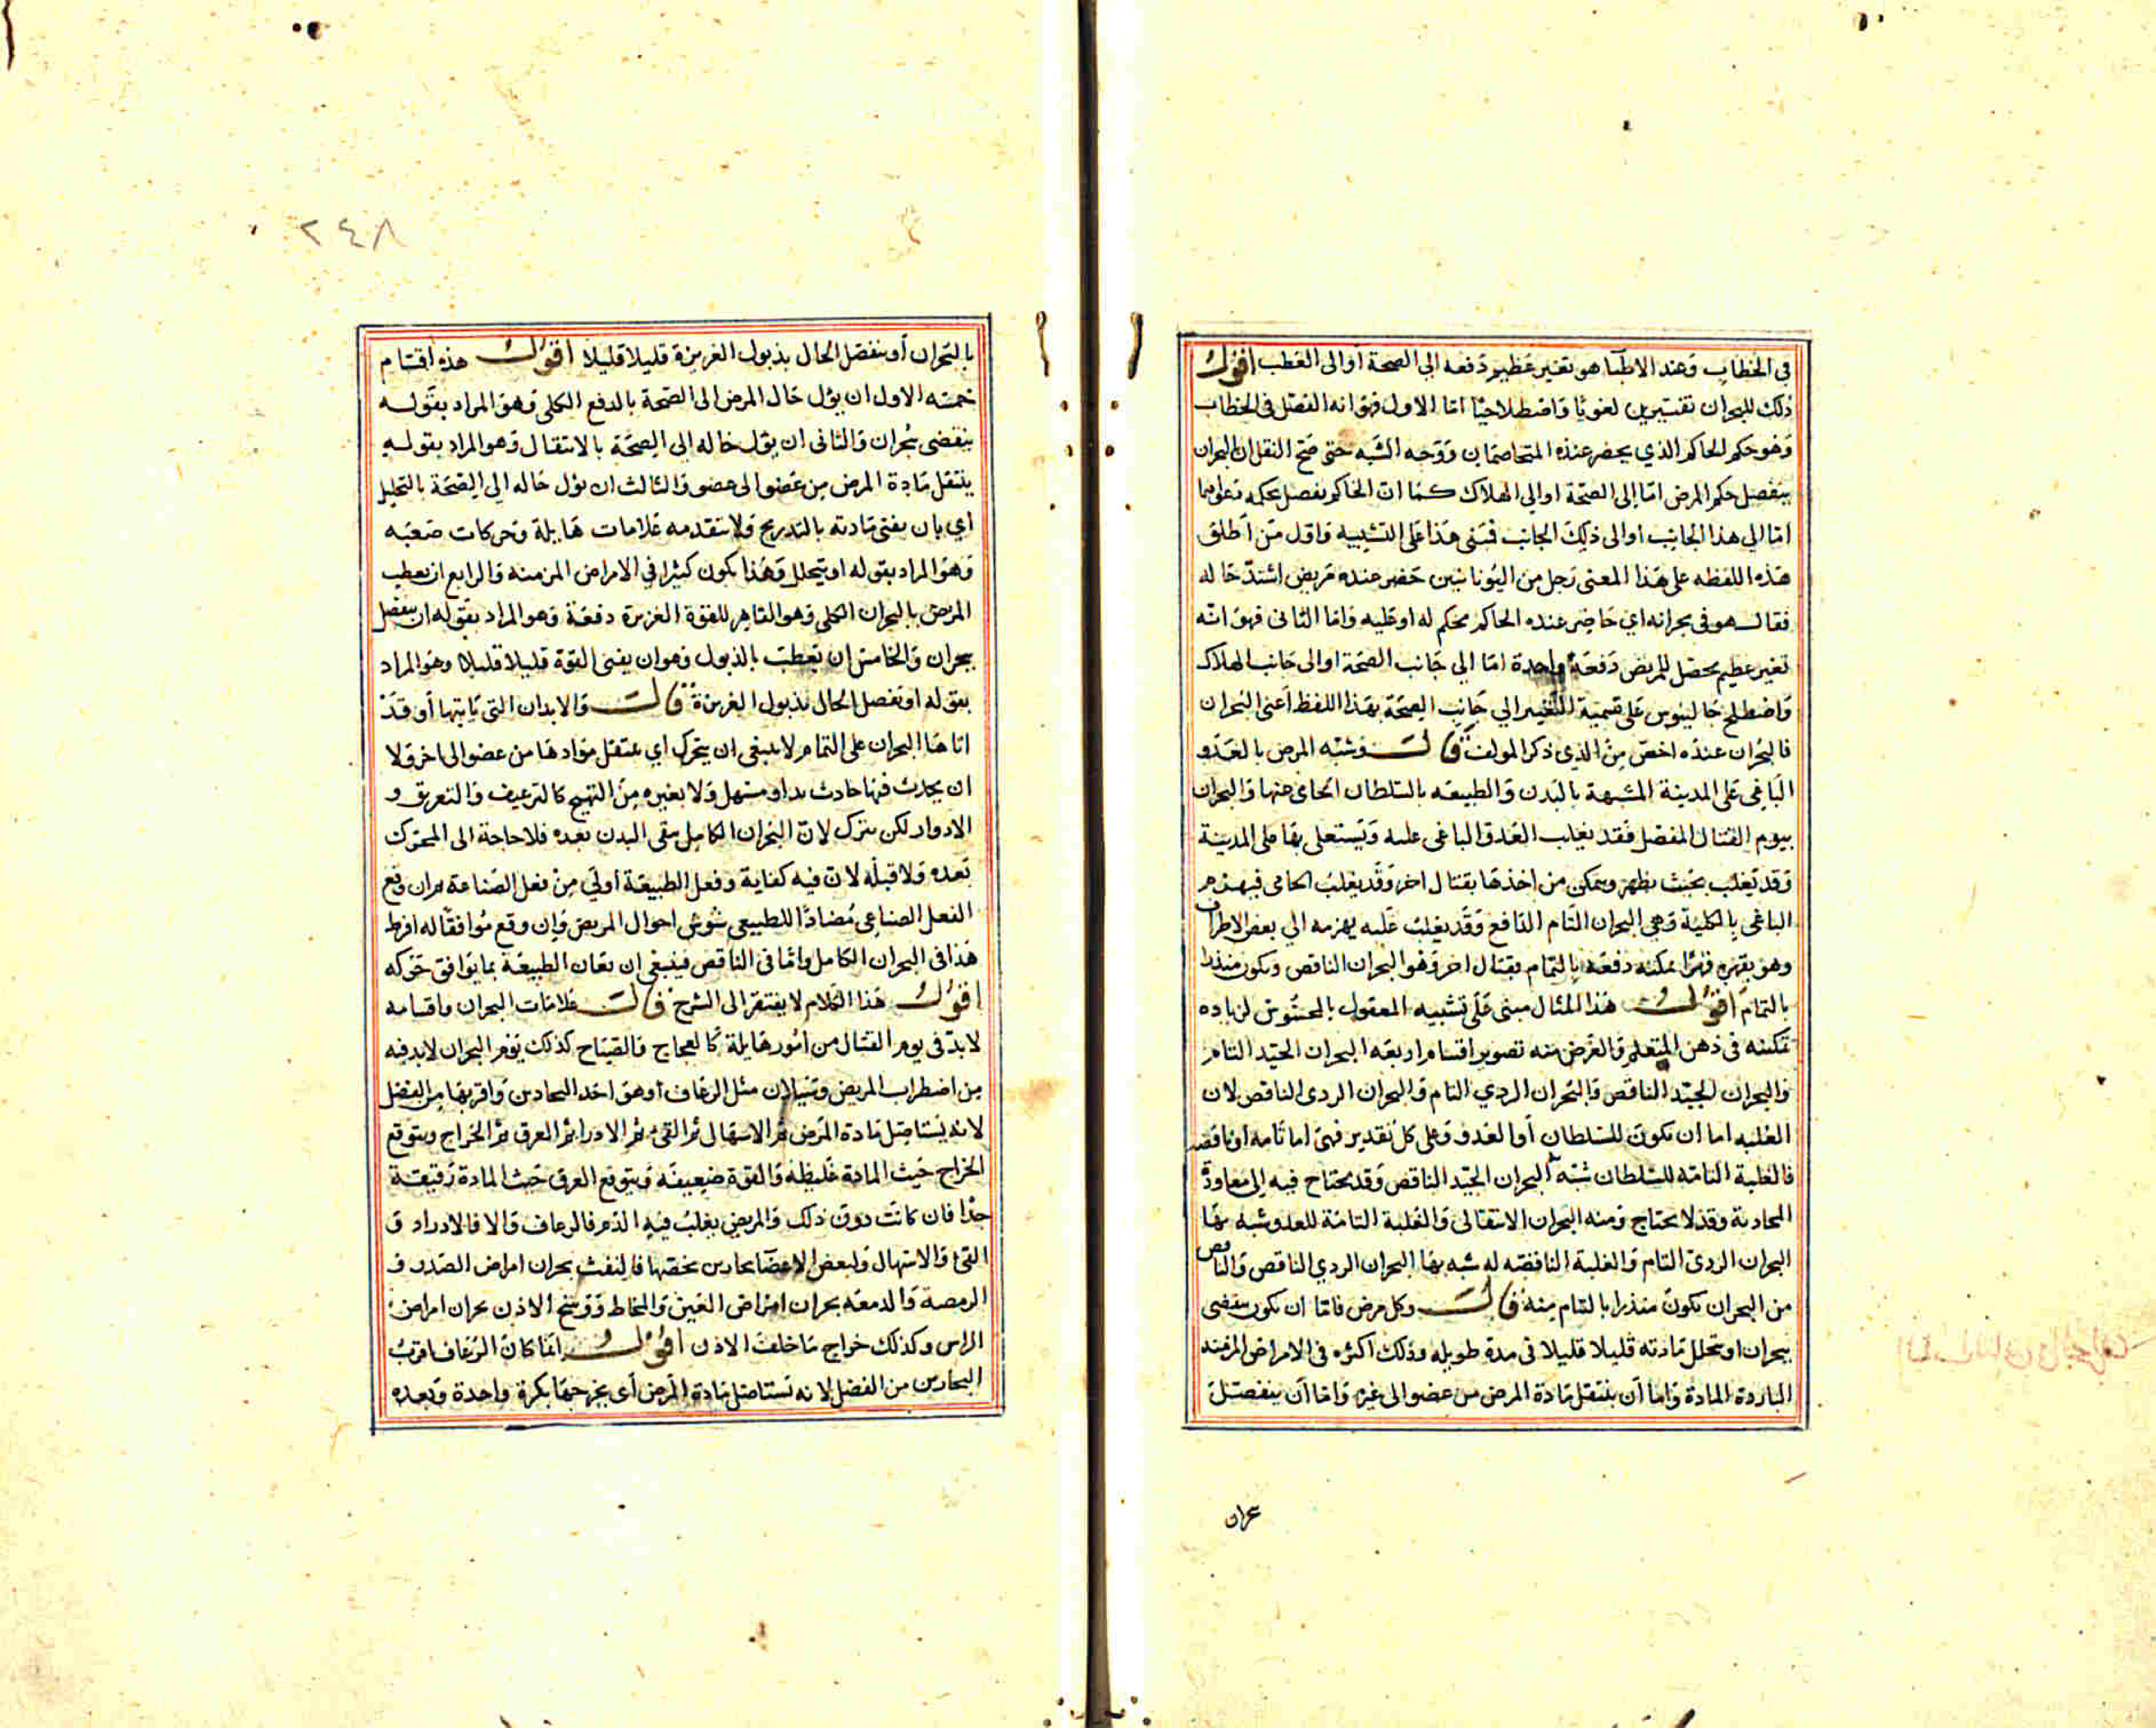 في الخطاب وعند الاطبا هو تغير عظيم دفعه الي الصحة او الى العطب اقول
ذلك للبحران تفسيرين لغويا واصطلاحيا اما الاول فهو انه الفصل في الخطاب
وهو حكم الحاكم الذي يحضر عنده المتخاصمان ووجه الشبه حتى صح النقل ان البحران
ينفصل حكم المرض اما إلى الصحة او الي الهلاك كما ان الحاكم يفصل بحكمه
اما الي هذا الجانب او الى ذلك الجانب فبنى هذا على التشبيه واول من اطلق
هذه اللفظه على هذا المعنى رجل من اليونانيين حضر عنده مريض اشتد حاله
فقال هو في بحرانه اي حاضر عنده الحاكم يحكم له او عليه واما الثاني فهو انه
تغير عظيم يحصل للمريض دفعة واحدة اما الي جانب الصحة او الى جانب الهلاك
واصطلح جالينوس على تسمية التغير الي جانب الصحة بهذا اللفظ اعني البحران
فالبحران عنده اخص من الذي ذكر المولف قالت وشبه المرض بالعدو
الباغي على المدينة المشبهة بالبدن والطبيعه بالسلطان الحامي عنها والبحران
بيوم القتال المفصل فقد يغلب العدو الباغي عليه ويستعلي بها على المدينة
وقد يغلب بحيث يظهر ويتمكن من اخذها بقتال اخر وقد يغلب الحامي فيهزم
الباغي بالكلية وهي البحران التام الدافع وقد يغلب عليه يهزمه الي بعض الاطراف
وهو يقهره قهرا يمكنه دفعه بالتمام بقتال اخر وهو البحران الناقص ويكون منذرا
بالتمام اقول هذا المثال مبنى على تشبيه المعقول بالمحسوس لزياده
تمكينه في ذهن المتعلم والغرض منه تصوير اقسام اربعه البحران الجيد التام
والبحران الجيد الناقص والبحران الردي التام والبحران الردى الناقص لان
الغلبه اما ان تكون للسلطان أو العدو وعلى كل تقدير فهي اما تامه او ناقصه
فالغلبة التامه للسلطان شبه البحران الجيد الناقص وقد يحتاج فيه الى معاودة
المحاربة وقد لا يحتاج ومنه البحران الانتقالى والغلبة التامة للعدو شبه بها
البحران الردي التام والغلبة الناقصة له شبه بها البحران الردي الناقص والناقص
من البحران يكون منذرا بالتام منه قالت وكل مرض فاما ان يكون ينقضى
ببحران او تحلل مادته قليلا قليلا في مدة طويله وذلك اكثره في الامراض المزمنه
الباردة المادة واما أن ينتقل مادة المرض من عضو الى غيره واما أن ينفصل
بحران
٢٤٨
بالبحران أو ينفصل الحال بذبول الغريزة قليلا قليلا اقول هذه اقسام
خمسة الاول ان يؤل حال المرض الى الصحة بالدفع الكلى وهو المراد بقوله
ينقضى بحران والثاني ان يؤل حاله الي الصحة بالانتقال وهو المراد بقوله
ينتقل مادة المرض من عضو الى عضو والثالث ان يؤل حاله الي الصحة بالتحليل
اي بان يفنى مادته بالتدريج ولا يتقدمه علامات هايلة وحركات صعبه
وهو المراد بقوله او يتحلل وهذا يكون كثيرا في الامراض المزمنه والرابع ان يعطب
المريض بالبحران الكلى وهو القاهر للقوة الغريزة دفعة وهو المراد بقوله ان ينفصل
ببحران والخامس ان يعطب بالذبول وهو ان يفنى القوة قليلا قليلا وهو المراد
بقوله او ينفصل الحال بذبول الغريزة قالت والابدان التي ياتيها أو قد
اتاها البحران على التمام لا ينبغي ان يتحرك اي ينتقل موادها من عضو الى اخر ولا
ان يحدث فيها حادث بدا ومسهل ولا بغيره من التهيج كالترعيف والتعريق و
الادوار لكن يترك لان البحران الكامل ينقي البدن بعده فلا حاجة الى المحرك
بعده ولا قبله لان فيه كفاية وفعل الطبيعة أولي من فعل الصناعة فان وقع
الفعل الصناعي مضادا للطبيعي شوش احوال المريض وإن وقع موافقا له افرط
هذا في البحران الكامل واما في الناقص فينبغي ان يعان الطبيعة بما يوافق حركه
اقول هذا الكلام لا يفتقر الى الشرح قالت علامات البحران واقسامه
لابد في يوم القتال من امور هايلة كالعجاج والصياح كذلك يوم البحران لابد فيه
من اضطراب المريض وسيلان مثل الرعاف أو هو احد البحارين واقربها من الفضل
لانه يستاصل مادة المرض ثم الاسهال ثم القئ ثم الادرار ثم العرق ثم الخراج ويتوقع
الخراج حيث المادة غليظة والقوة ضعيفة ويتوقع العرق حيث المادة رقيقة
جدا فان كانت دون ذلك والمريض يغلب فيه الدم فالرعاف والا فالادرار و
القئ والاسهال ولبعض الاعضا بحارين تخصها فالنفث بحران امراض الصدر و
الرمصة والدمعه بحران امراض العين والمخاط ووسخ الاذن بحران امراض
الراس وكذلك خراج ما خلف الاذن اقول انما كان الرعاف اقرب
البحارين من الفضل لانه تستاصل مادة المرض أى يخرجها بكرة واحدة وبعده